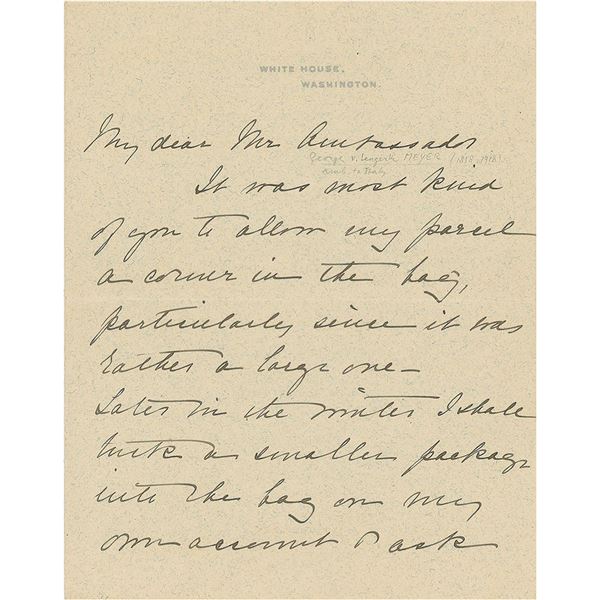 WHITE HOUSE,
WASHINGTON.
My dear Mr Ambassador
George v. Lengerke MEYER (1858-1918)
Amb. to Italy
It was most kind
of you to allow my parcel
a corner in the bag,
particularly since it was
rather a large one –
Later in the winter I shall
tuck a smaller package
into the bag on my
own account & ask